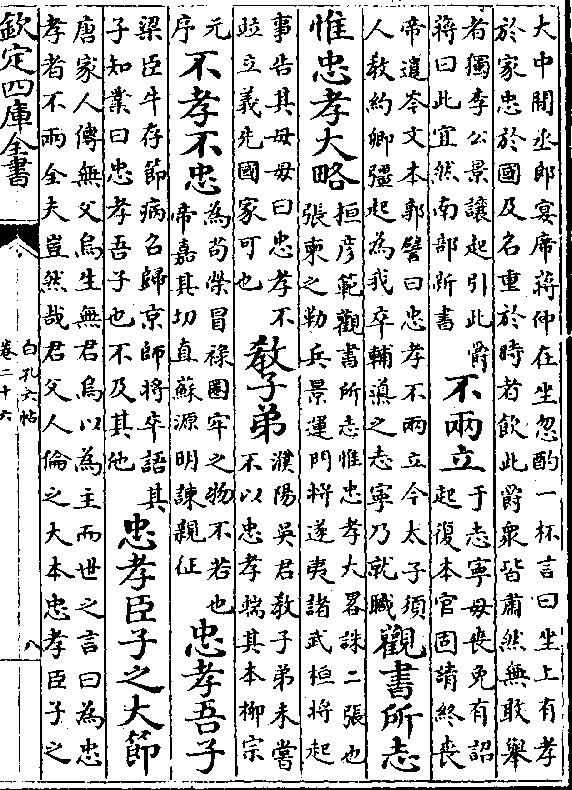 大中閒丞郎宴席蔣伸在坐忽酌一杯言曰坐上有孝
於家忠於國及名重於時者飲此爵衆皆肅然無敢舉
者獨李公景讓起引此爵
蔣曰此宜然南部新書
不兩立
于志寧母喪免有詔
起復本官固請終喪
帝遣岑文本郭譬曰忠孝不兩立今太子須
人教約卿彊起為我卒輔導之志寧乃就職
觀書所志
惟忠孝大略
桓彥範觀書所志惟忠孝大畧誅二張也
張柬之勒兵景運門將遂夷諸武桓將起
事告其母母曰忠孝不
竝立義先國家可也
教子弟
濮陽吳君教子弟未嘗
不以忠孝端其本柳宗
元
序
不孝不忠
為茍榮冒祿圈牢之物不若也
帝嘉其切直蘇源明諫親征
忠孝吾子
梁臣牛存節病召歸京師將卒語其
子知業曰忠孝吾子也不及其他
忠孝臣子之大節
唐家人傳無父烏生無君烏以為主而世之言曰為忠
孝者不兩全夫豈然哉君父人倫之大本忠孝臣子之
欽定四庫全書
白孔六帖
卷二十六
八